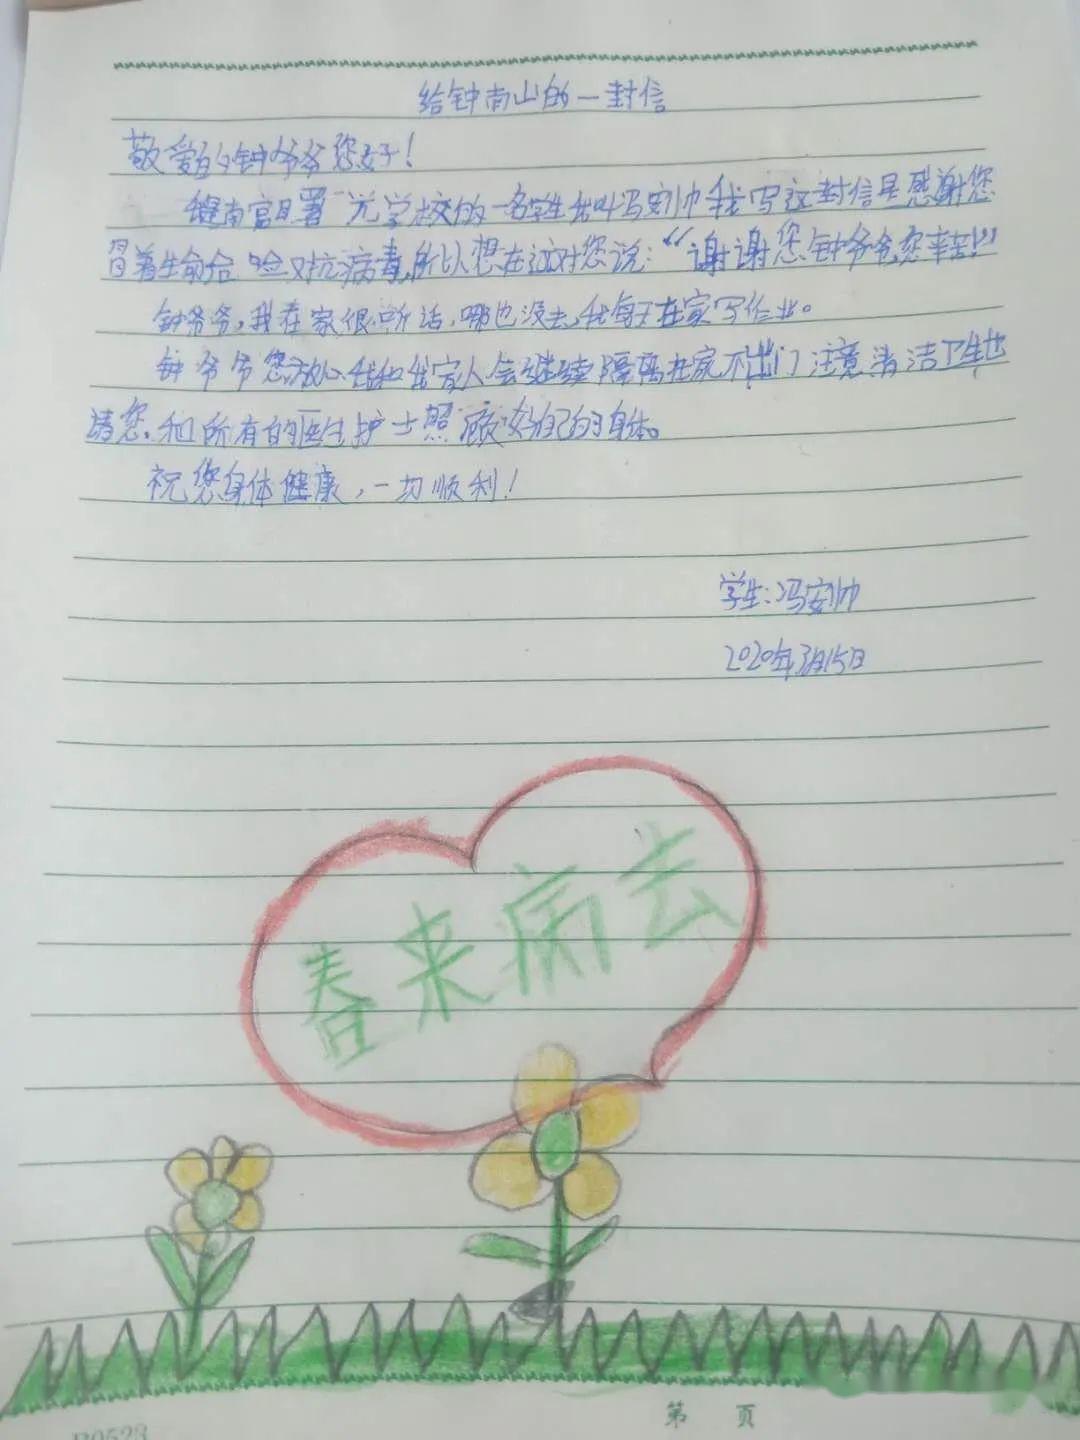 给钟南山的一封信
敬爱的钟爷爷您好！
南官 一名学生我叫冯安帅我写这封信是感谢您
冒着生命 险对抗病毒,所以想在这对您说：“谢谢您钟爷爷,您辛苦!”
钟爷爷,我在家很听话,哪也没去,我每天在家写作业。
钟爷爷您放心我和我家人会继续隔离在家不出门注意清洁卫生也
请您,和所有的医生护士照顾好自己的身体。
祝您身体健康,一切顺利!
学生:冯安帅
2020年3月15日
春来病去
第 页
B0523